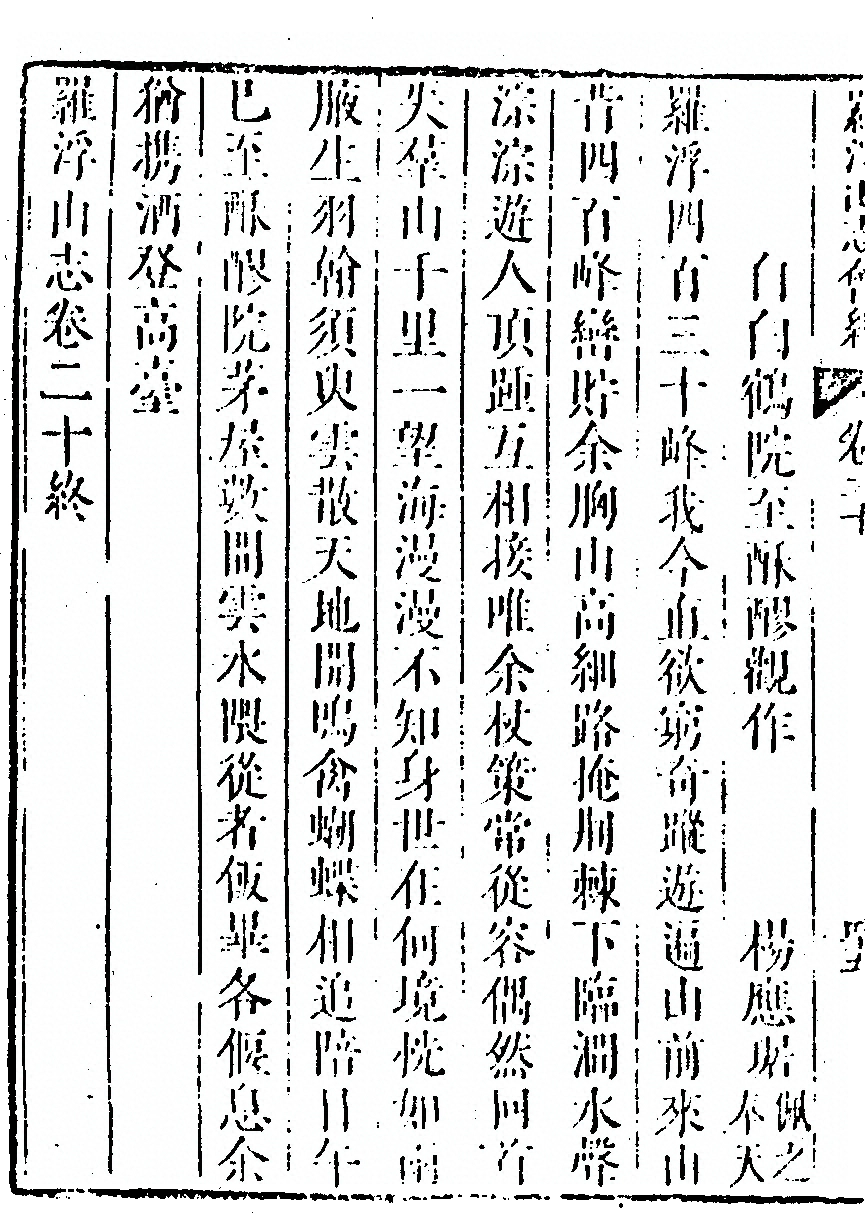 羅浮山志會編 卷二十
自白鶴院至酥醪觀作 楊應琚 佩之 奉天
羅浮四百三十峰我今直欲窮奇蹤遊遍山前來山
背四百峰巒貯余胸山高細路掩荆棘下臨澗水聲
淙淙遊人頂踵互相接唯余杖策常從容偶然回首
失羣山千里一望海漫漫不知身世在何境恍如兩
腋生羽翰須臾雲散天地開鳴禽蝴蝶相追陪日午
已至酥醪院茅屋數間雲水隈從者飯畢各偃息余
猶携酒登高臺
羅浮山志卷二十終